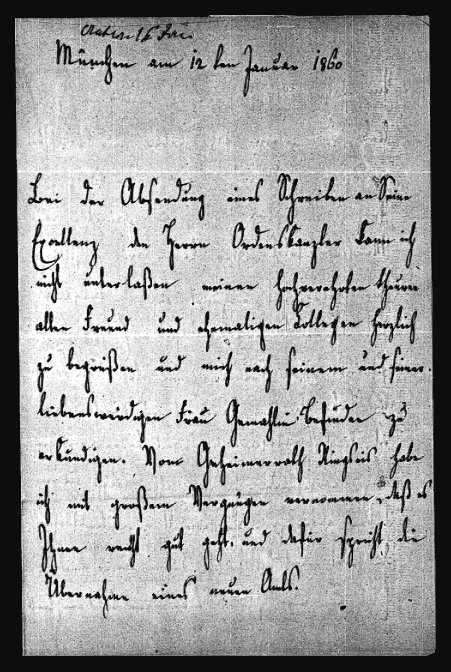 München am 12 ten Januar 1860
Bei der Absendung eines Schreiben an Seine
Excellenz den Herrn Ordenskanzler kann ich
nicht unterlaßen meinen hochverehrten theuren
alten Freund und ehemaligen Kollegen herzlich
zu begrüßen und mich nach seinem und seiner
liebenswürdigen Frau Gemahlin Befinden zu
erkundigen. Vom Geheimenrath Ringseis habe
ich mit großem Vergnügen vernommen, daß es
Ihnen recht gut geht, und dafür spricht die
Übernahme eines neuen Amts.